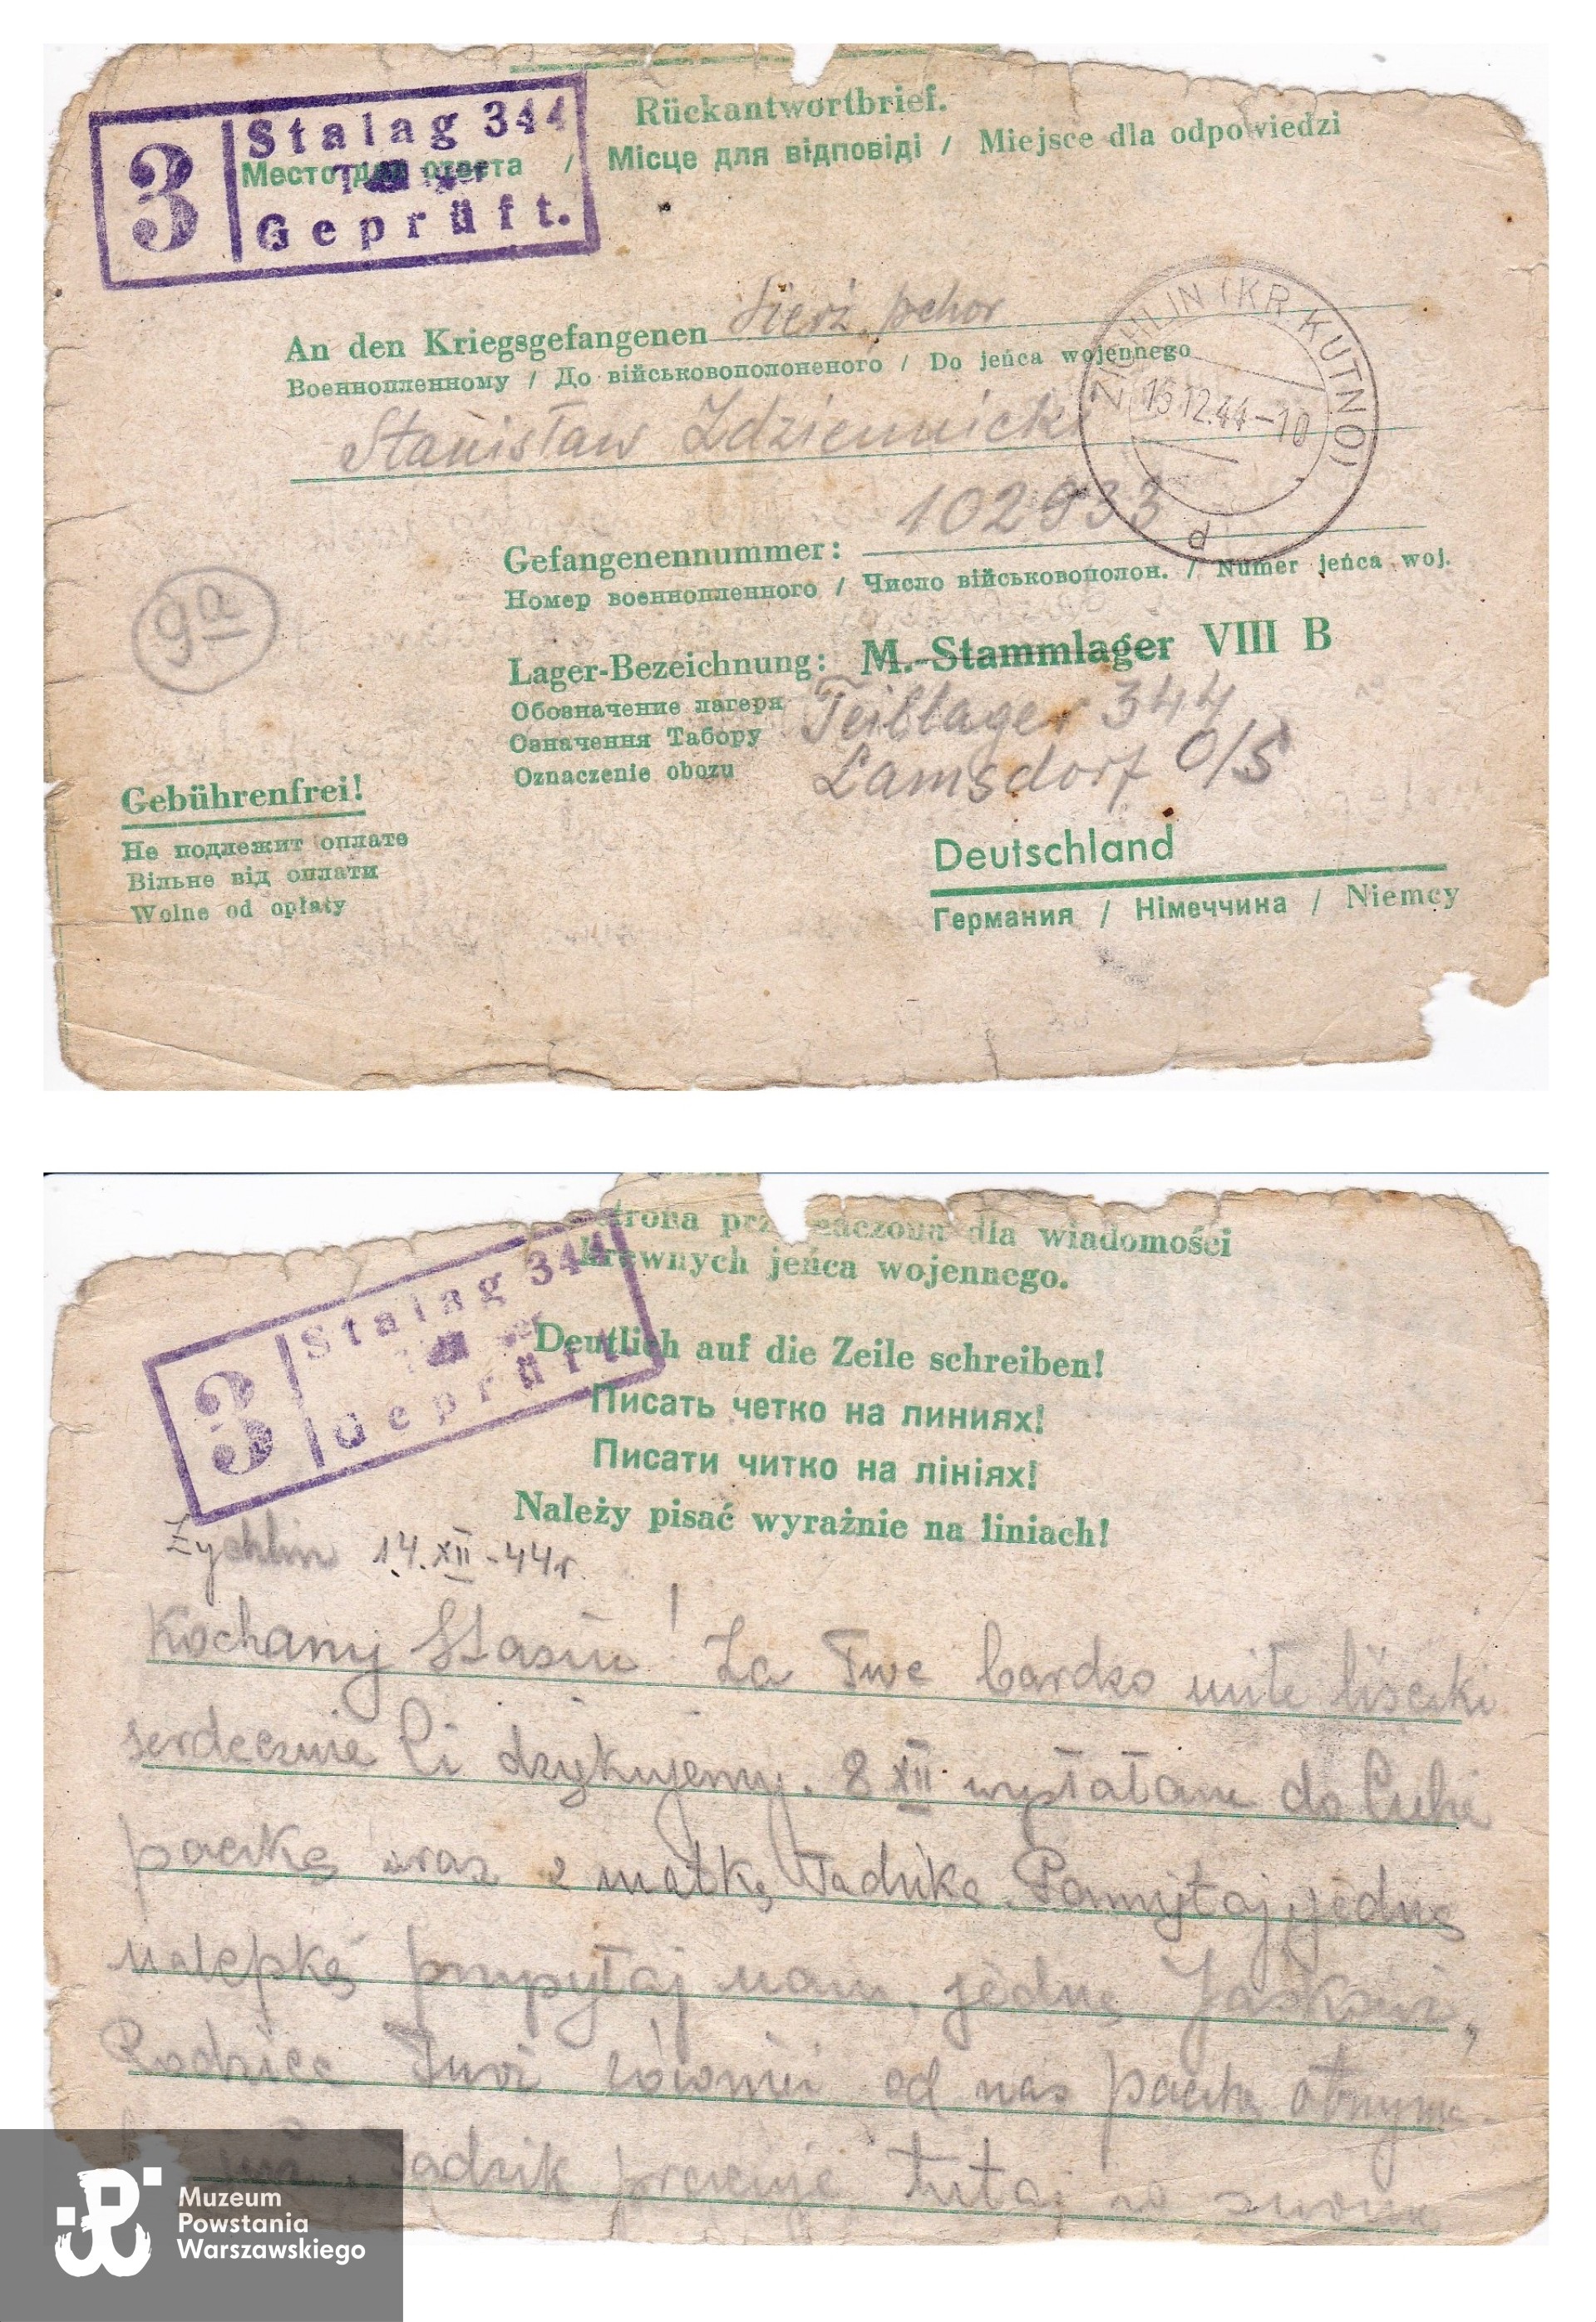 Rückantwortbrief.
Место для ответа / Місце для відповіді / Miejsce dla odpowiedzi
3 Stalag 344
Geprüft.
An den Kriegsgefangenen Sierż. pchor
Военнопленному / До військовополоненого / Do jeńca wojennego
Stanisław Zdziennicki
ZICHLIN (KR. KUTNO)
15.12.44-10
d
Gefangenennummer: 102933
Номер военнопленного / Число військовополон. / Numer jeńca woj.
9a
Lager-Bezeichnung: M.-Stammlager VIII B
Обозначение лагеря Teillager 344
Означення Табору
Oznaczenie obozu Lamsdorf O/S
Gebührenfrei!
Не подлежит оплате
Вільне від оплати
Wolne od opłaty
Deutschland
Германия / Німеччина / Niemcy
strona dla wiadomości
krewnych jeńca wojennego.
3 Stalag 344
Geprüft
Deutlich auf die Zeile schreiben!
Писать четко на линиях!
Писати читко на лініях!
Należy pisać wyraźnie na liniach!
Żychlin 14.XII-44r.
Kochany Stasiu! Za Twe bardzo miłe liściki
serdecznie Ci dziękujemy. 8 XII wysłałam do Ciebie
paczkę wraz z matką Tadzika. Pamiętaj, jedną
nalepkę przysyłaj nam, jedną
Rodzice Twoi również od nas paczkę otrzyma-
Tadzik pracuje tutaj w
Muzeum
Powstania
Warszawskiego